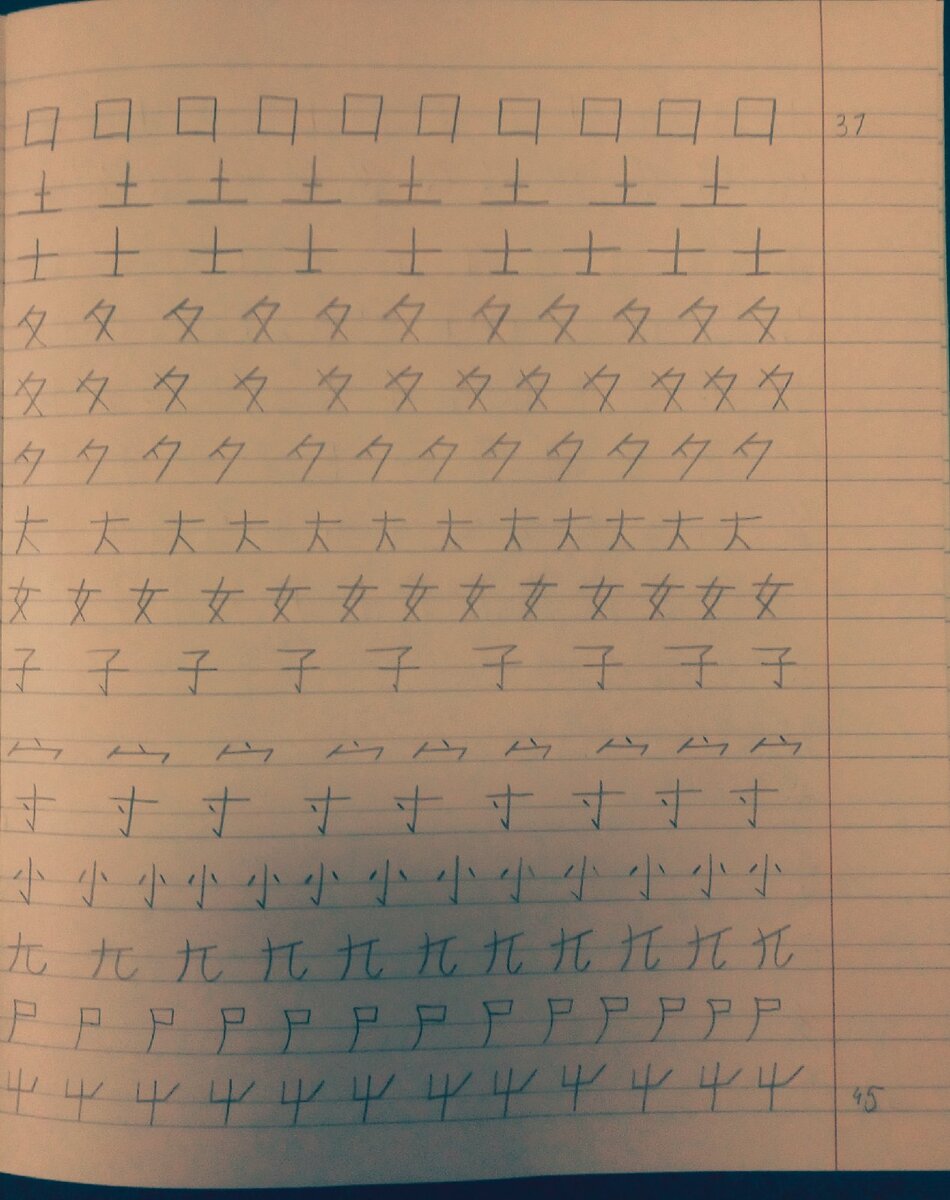 囗 囗 囗 囗 囗 囗 囗 囗 囗 囗 31
土 土 土 土 土 土 土 土
士 士 士 士 士 士 士 士 士
夂 夂 夂 夂 夂 夂 夂 夂 夂 夂 夂
夊 夊 夊 夊 夊 夊 夊 夊 夊 夊 夊 夊
夕 夕 夕 夕 夕 夕 夕 夕 夕 夕 夕 夕
大 大 大 大 大 大 大 大 大 大 大 大
女 女 女 女 女 女 女 女 女 女 女 女 女
子 子 子 子 子 子 子 子 子
宀 宀 宀 宀 宀 宀 宀 宀 宀
寸 寸 寸 寸 寸 寸 寸 寸 寸
小 小 小 小 小 小 小 小 小 小 小 小 小
尢 尢 尢 尢 尢 尢 尢 尢 尢 尢 尢
尸 尸 尸 尸 尸 尸 尸 尸 尸 尸 尸 尸 尸
屮 屮 屮 屮 屮 屮 屮 屮 屮 屮 屮 屮 45